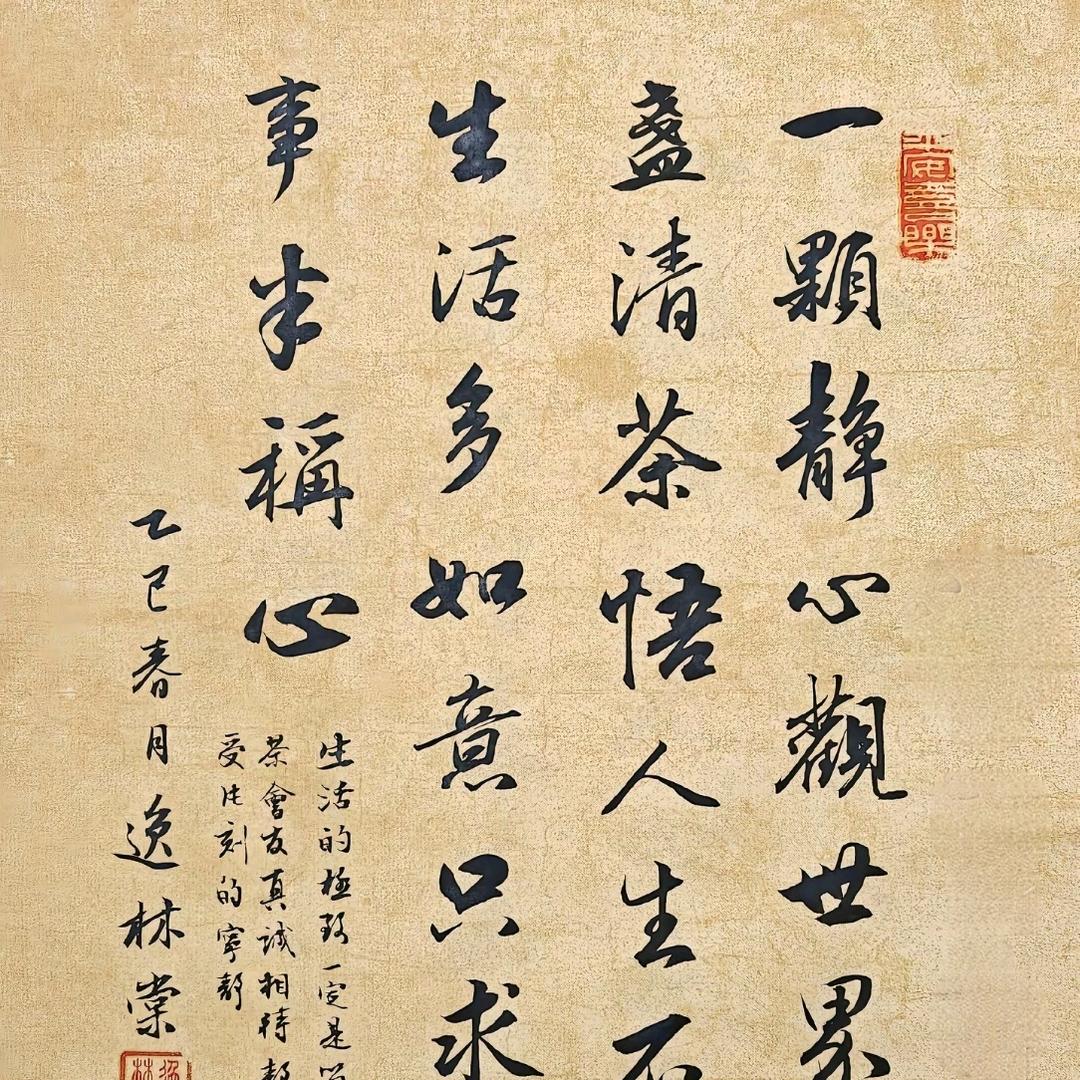 一顆静心觀世界
盞清茶悟人生不
生活多如意只求
事半稱心
生活的極致一定是
茶會友真誠相待靜
受此刻的寧靜
乙巳春月逸林棠